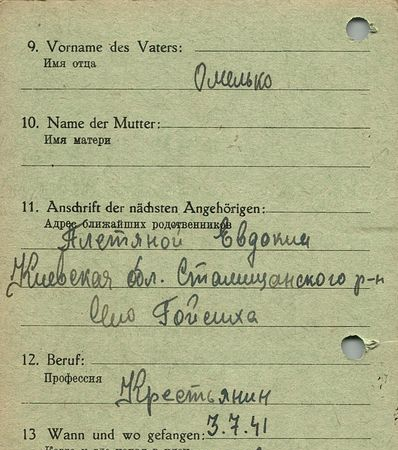 9. Vorname des Vaters:
Имя отца
Омелько
10. Name der Mutter:
Имя матери
11. Anschrift der nächsten Angehörigen:
Адрес ближайших родственников
Плетяной Евдокии
Киевская обл. Ставищанского р-н
село Гойсиха
12. Beruf:
Профессия
Крестьянин
13 Wann und wo gefangen: 3.7.41